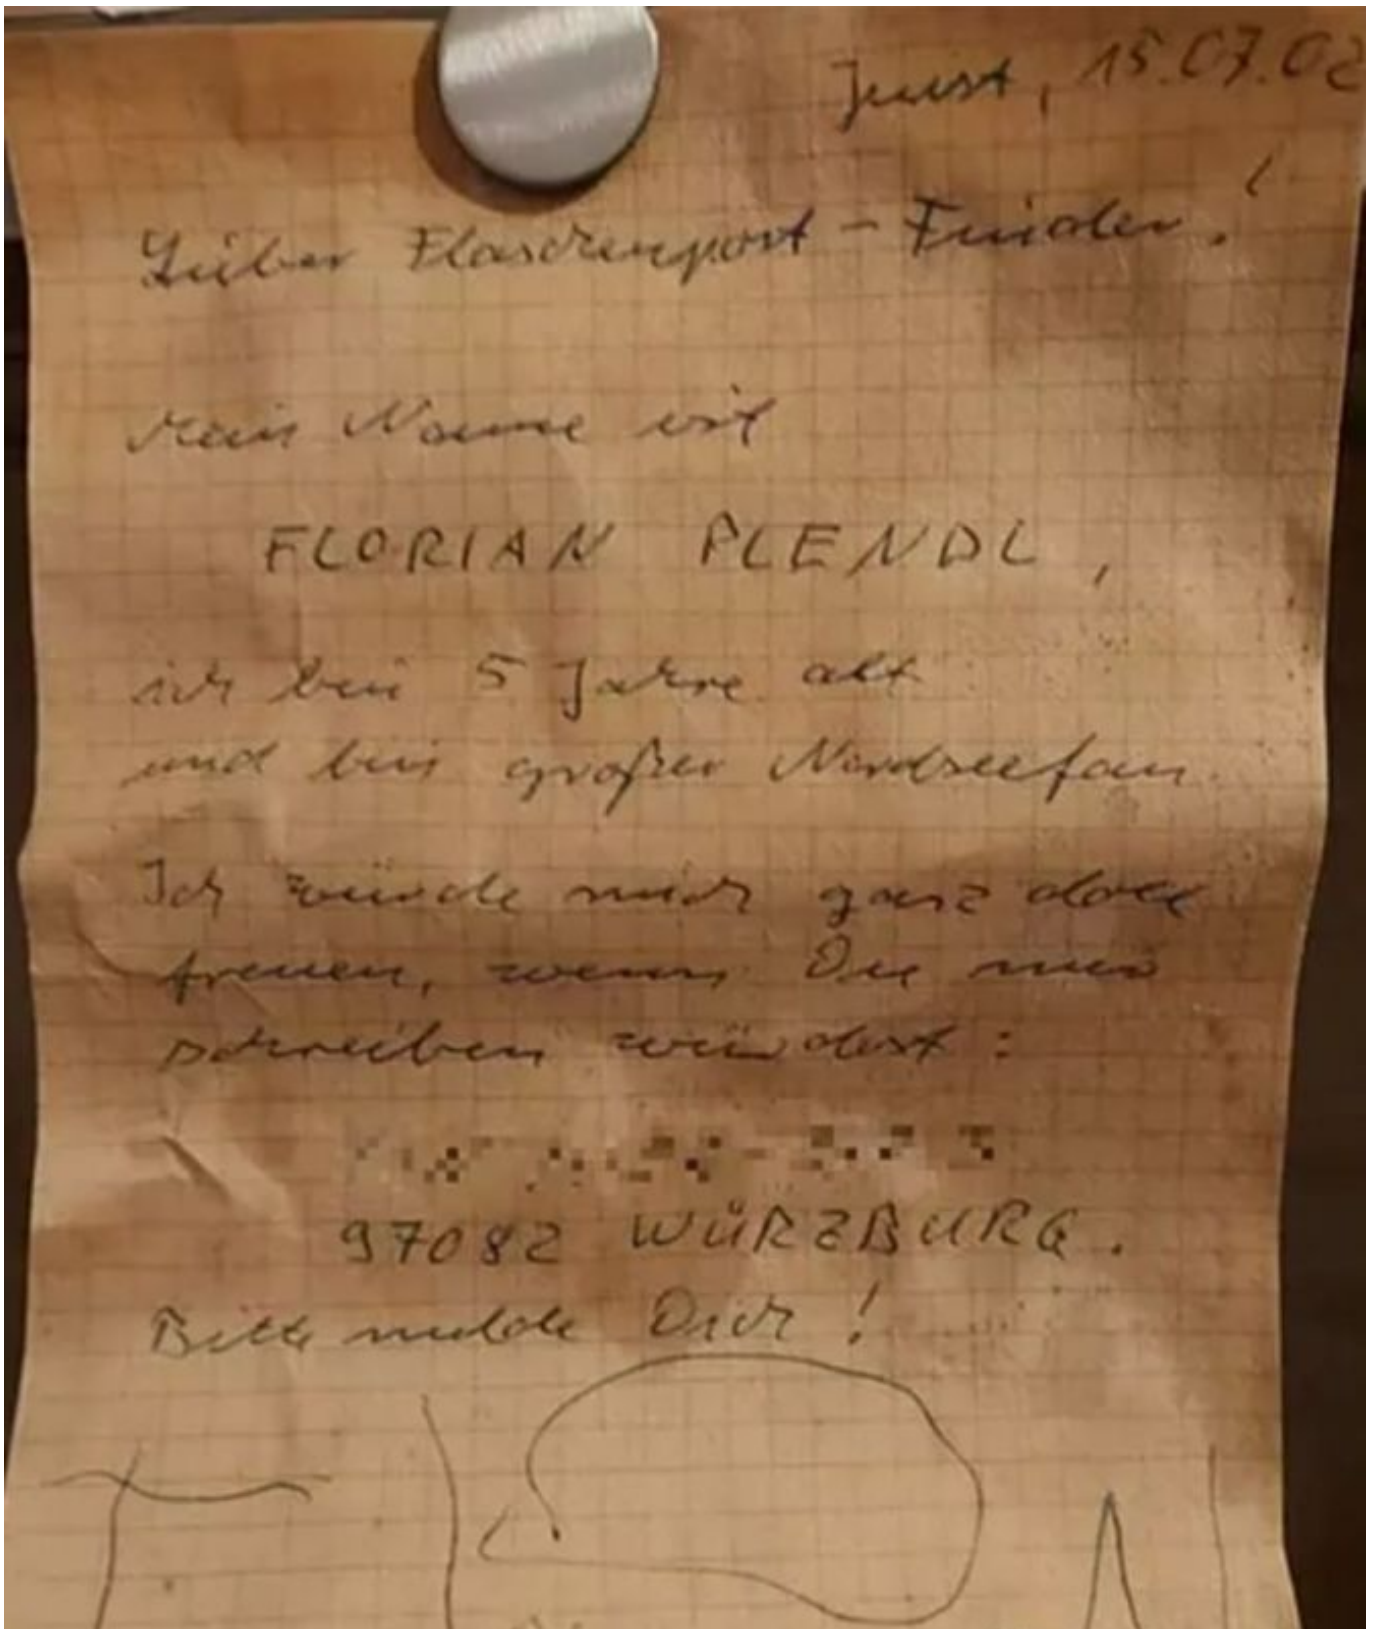 Juist, 15.07.02
Lieber Flaschenpost-Finder!
Mein Name ist
FLORIAN PLENDL,
ich bin 5 Jahre alt
und bin großer Nordseefan.
Ich würde mich ganz doll
freuen, wenn Du mir
schreiben würdest:
97082 WÜRZBURG.
Bitte melde Dich!